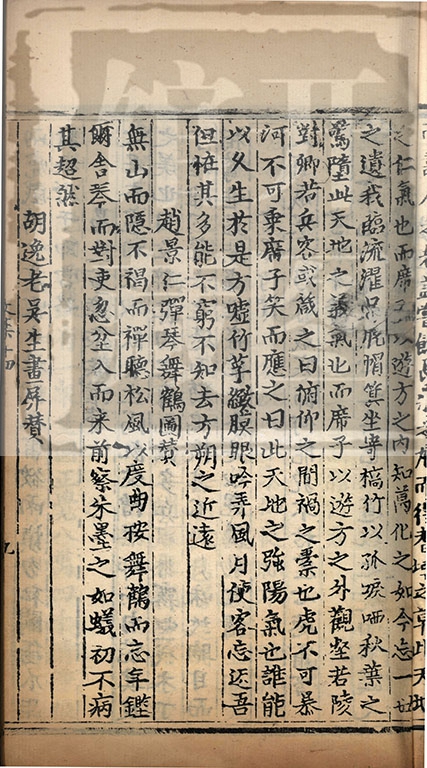 之仁氣也而席子以遊方之內知萬化之如今忘一世
之遺我臨流濯足脫帽箕坐寄槁竹以孤嘯哂秋葉之
驚隕此天地之義氣也而席子以遊方之外觀壑若陵
對卿若兵客或箴之曰俯仰之間禍之橐也虎不可暴
河不可乗席子笑而應之曰此天地之強陽氣也誰能
以久生於是方噓竹芋緻腹眼吟弄風月使客忘还吾
但恠其多能不窮不知去方朔之近遠
趙景仁彈琴舞鶴圖贊
無山而隠不褐而禪聽松風以度曲按舞鶴而忘年鑑
爾舎琴而對吏忽坌入而来前察朱墨之如蟻初不病
其超然
胡逸老吴生畫屏賛
文集十四
九